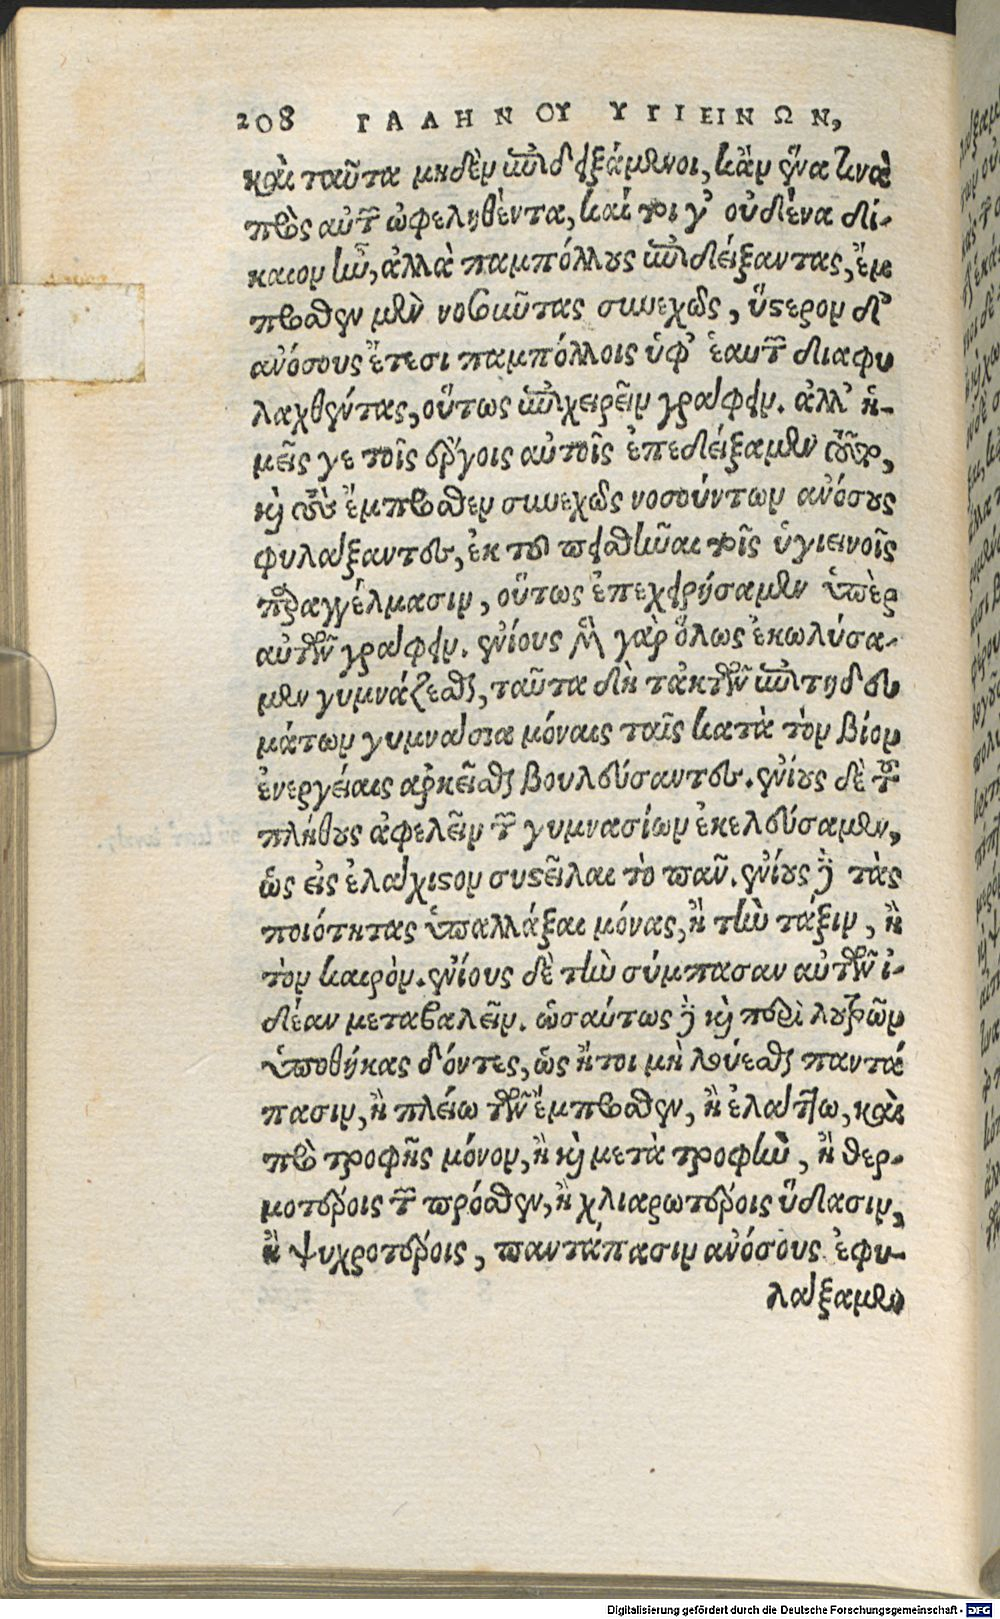 208 ΓΑΛΗΝΟΥ ΥΓΙΕΙΝΩΝ,
καὶ ταῦτα μηδὲν ἐπιδειξάμενοι, κἂν ἕνα τινὰ
πρὸς αὐτῶν ὠφεληθέντα, καί τοι γ' οὐδ' ἕνα δί-
καιον ἦν, ἀλλὰ παμπόλλους ἐπιδείξαντας, ἔμ
προσθεν μὲν νοσοῦντας συνεχῶς, ὕστερον δ'
ἀνόσους ἔτεσι παμπόλλοις ὑφ' ἑαυτῶν διαφυ
λαχθέντας, οὕτως ἐπιχειρεῖν γράφειν. ἀλλ' ἡ-
μεῖς γε τοῖς ἔργοις αὐτοῖς ἐπεδείξαμεν
καὶ ἔμπροσθεν συνεχῶς νοσούντων ἀνόσους
φυλάξαντες, ἐκ τοῦ πεισθῆναι τοῖς ὑγιεινοῖς
παραγγέλμασιν, οὕτως ἐπεχειρήσαμεν ὑπὲρ
αὐτῶν γράφειν. ἐνίους μὲν γὰρ ὅλως ἐκωλύσα-
μεν γυμνάζεσθαι, ταῦτα δὴ τὰ ἐκ τῶν ἐπιτηδευ
μάτων γυμνάσια μόναις ταῖς κατὰ τὸν βίον
ἐνεργείαις ἀρκεῖσθαι βουλεύσαντες. ἐνίους δὲ τοῦ
πλήθους ἀφελεῖν τῶν γυμνασίων ἐκελεύσαμεν,
ὡς εἰς ἐλάχιστον συστεῖλαι τὸ πᾶν. ἐνίους δὲ τὰς
ποιότητας ὑπαλλάξαι μόνας, ἢ τὴν τάξιν, ἢ
τὸν καιρὸν. ἐνίους δὲ τὴν σύμπασαν αὐτῶν ἰ-
δέαν μεταβαλεῖν. ὡσαύτως δὲ καὶ περὶ λουτρῶν
ὑποθήκας δόντες, ὡς ἤτοι μὴ λούεσθαι παντά
πασιν, ἢ πλείω τῶν ἔμπροσθεν, ἢ ἐλάττω, καὶ
πρὸ τροφῆς μόνον, ἢ καὶ μετὰ τροφὴν, ἢ θερ-
μοτέροις τῶν πρόσθεν, ἢ χλιαρωτέροις ὕδασιν,
ἢ ψυχροτέροις, παντάπασιν ἀνόσους ἐφυ-
λάξαμεν
Digitalisierung gefördert durch die Deutsche Forschungsgemeinschaft - DFG